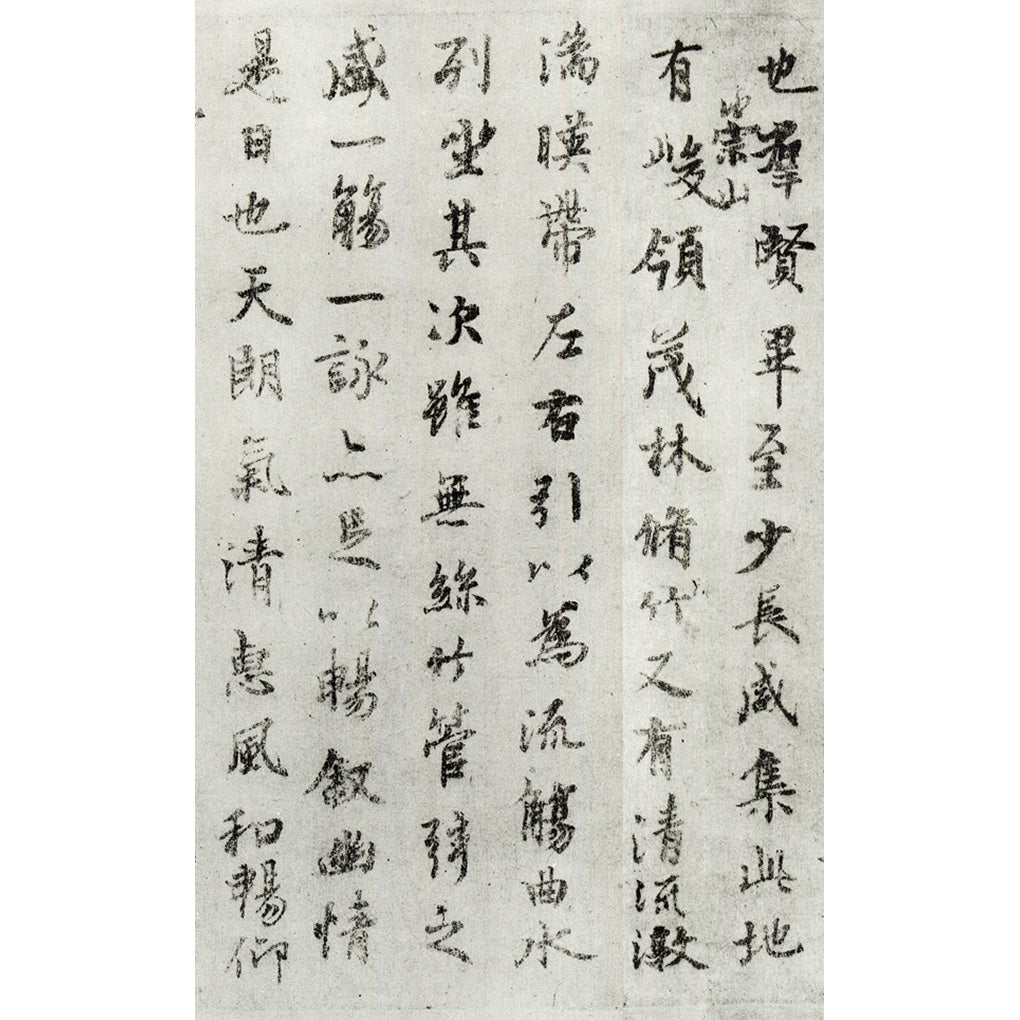 也羣賢畢至少長咸集此地
有崇山峻領茂林脩竹又有清流激
湍暎帶左右引以爲流觴曲水
列坐其次雖無絲竹管弦之
盛一觴一詠亦足以暢敘幽情
是日也天朗氣清惠風和暢仰